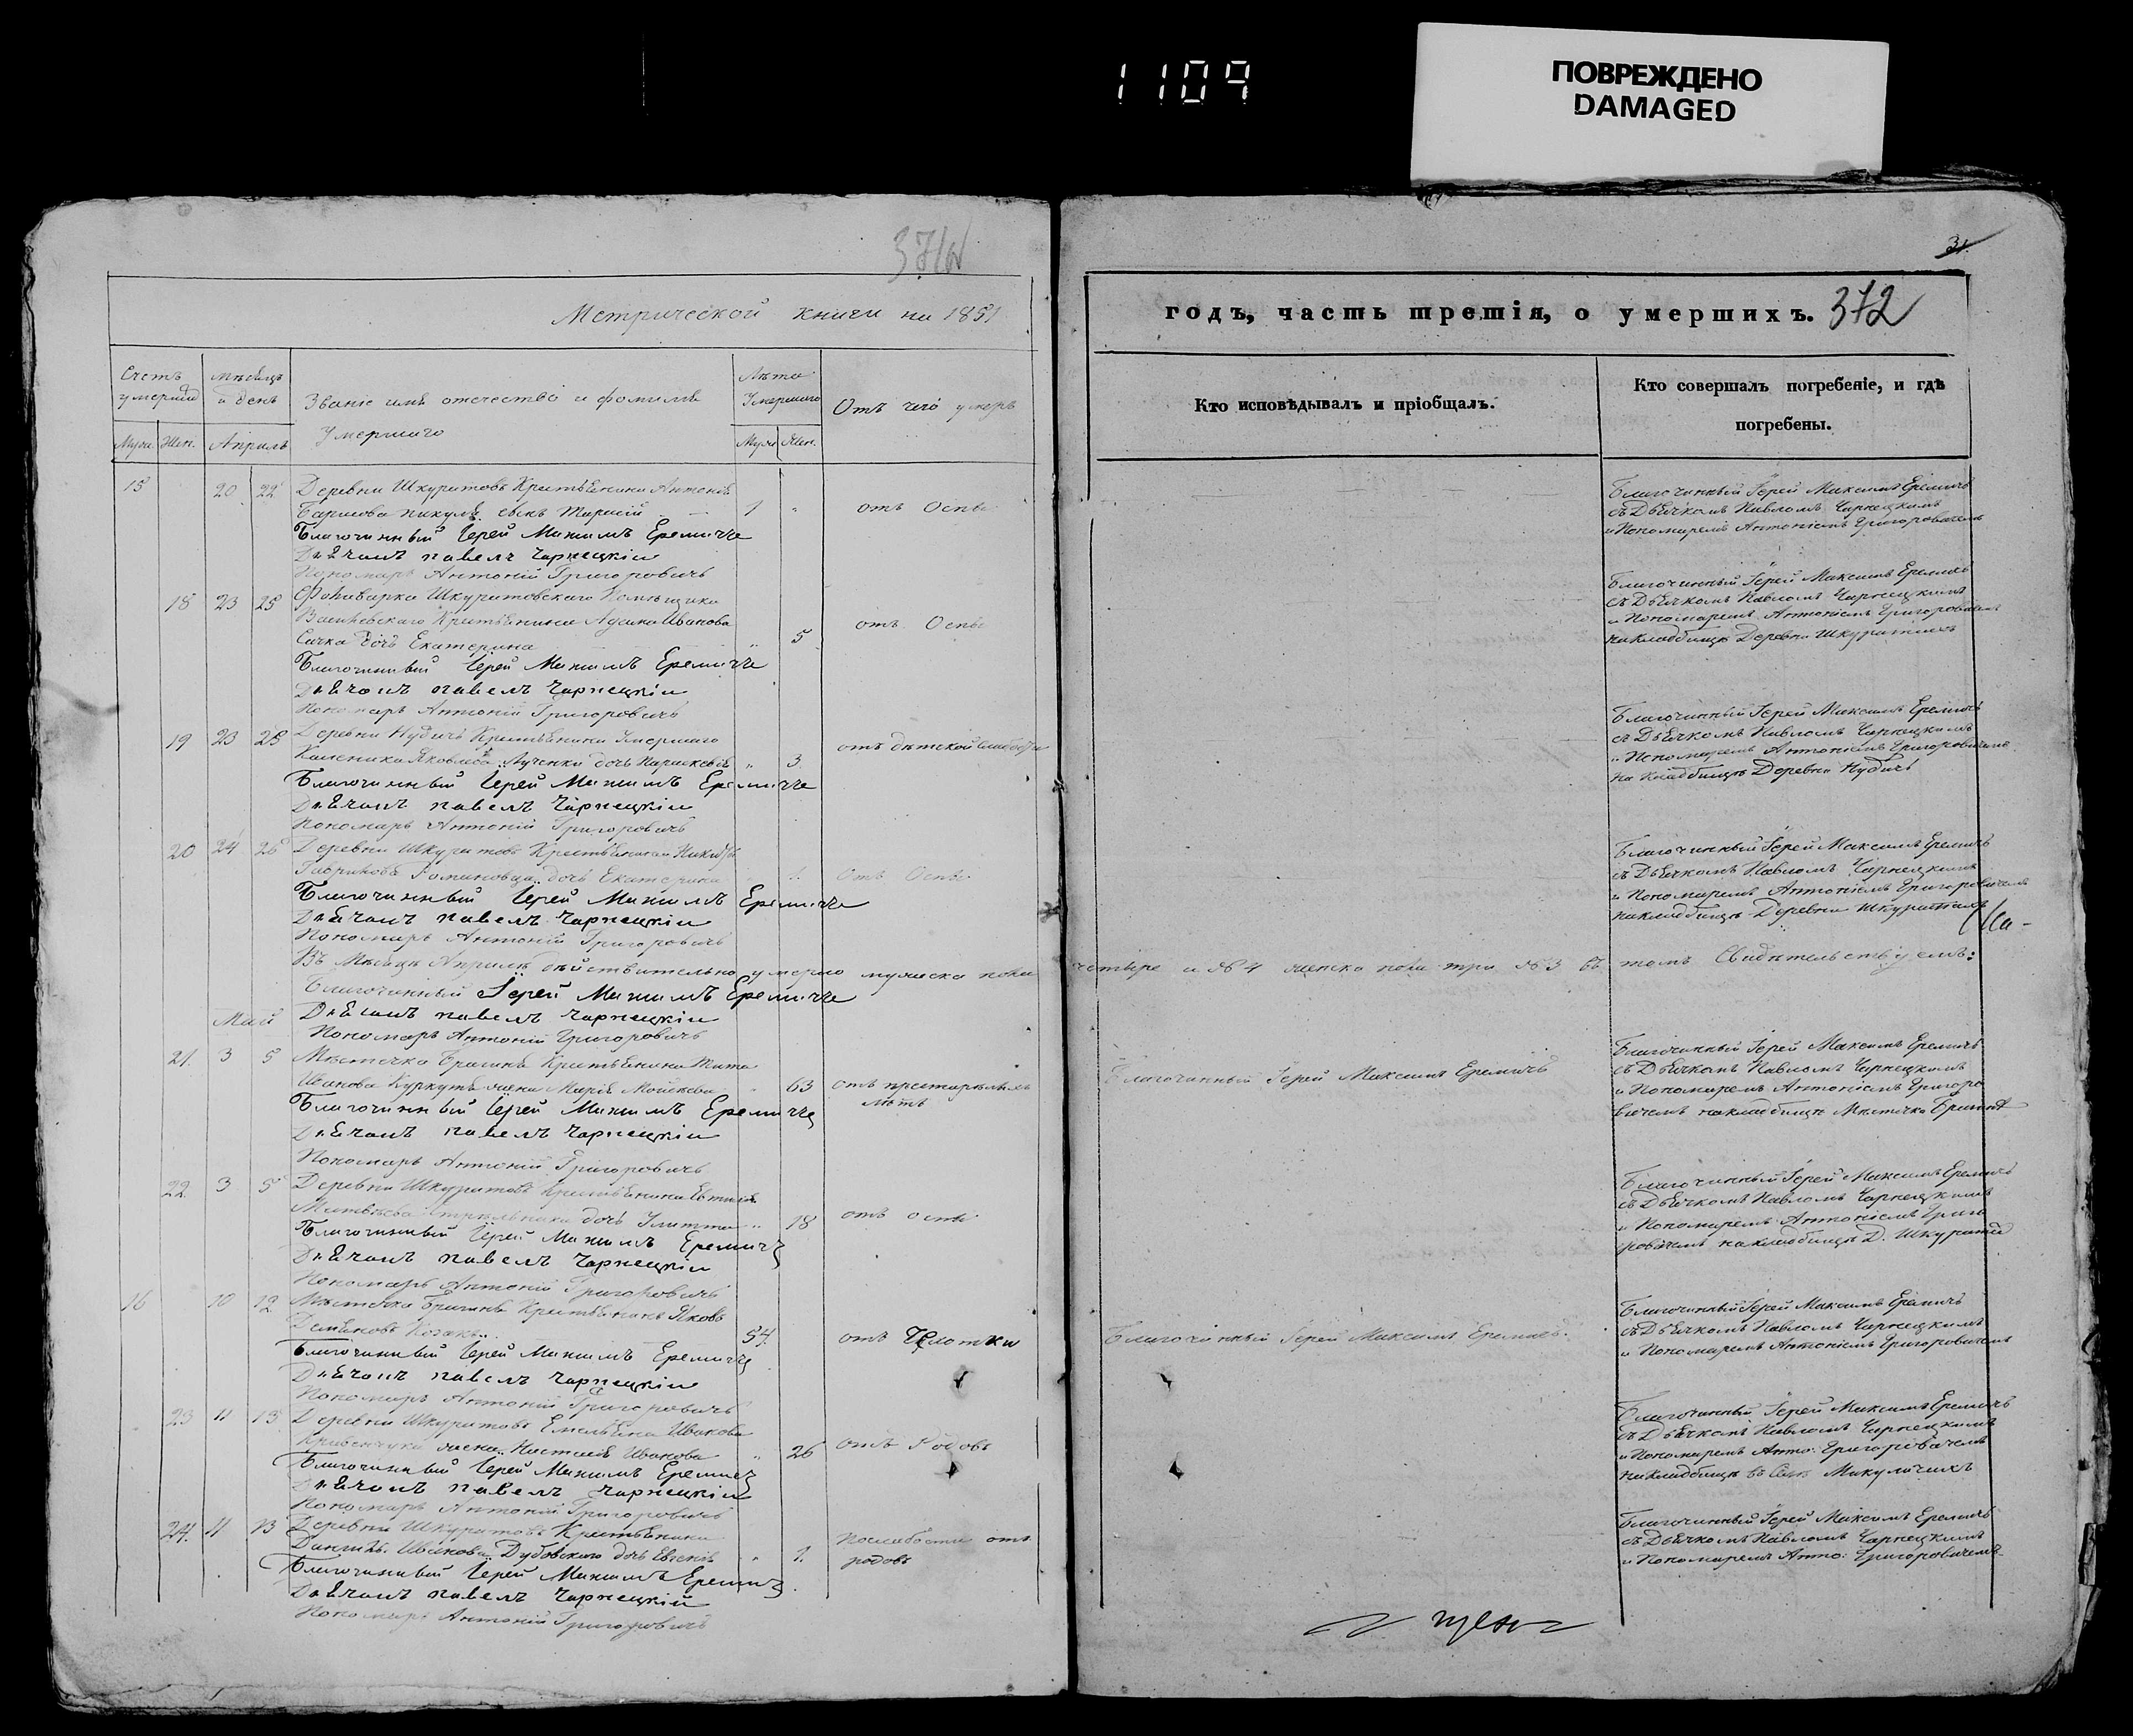 1109
ПОВРЕЖДЕНО
DAMAGED
31
Метрической книги на 1851
годъ, часть третія, о умершихъ. 372
Счетъ умершихъ
Муж. Жен.
Мѣсяцъ и день
Апрель
Званіе имя отечество и фомилія
Умершаго
Лѣта Умершаго
Муж. Жен.
Отъ чего умеръ
Кто исповѣдывалъ и пріобщалъ.
Кто совершалъ погребеніе, и гдѣ
погребены.
15 20 22 Деревни Шкуратовъ Крестьянина Антонія
1 отъ Оспы
Благочинный Іерей Максимъ Еремичъ
Дьячокъ павелъ Чарнецкій
Пономарь Антоній Григоровичъ
Благочинный Іерей Максимъ Еремичъ
съ Дьячкомъ Павломъ Чарнецкимъ
и Пономаремъ Антоніемъ Григоровичемъ
18 23 25 Фольварка Шкуратовскаго Помѣщика
Крестьянина Адама Иванова
дочь Екатерина 5 отъ Оспы
Благочинный Іерей Максимъ Еремичъ
Дьячокъ павелъ Чарнецкій
Пономарь Антоній Григоровичъ
Благочинный Іерей Максимъ Еремичъ
съ Дьячкомъ Павломъ Чарнецкимъ
и Пономаремъ Антоніемъ Григоровичемъ
на кладбищѣ Деревни Шкуратахъ
19 23 25 Деревни Нудичъ Крестьянина Умершаго
Яковлева дочь Параскевія 3 отъ дѣтской слабости
Благочинный Іерей Максимъ Еремичъ
Дьячокъ павелъ Чарнецкій
Пономарь Антоній Григоровичъ
Благочинный Іерей Максимъ Еремичъ
съ Дьячкомъ Павломъ Чарнецкимъ
и Пономаремъ Антоніемъ Григоровичемъ
на кладбищѣ Деревни Нудичъ
20 24 26 Деревни Шкуратовъ Крестьянина Никиты
дочь Екатерина 1 отъ Оспы
Благочинный Іерей Максимъ Еремичъ
Дьячокъ павелъ Чарнецкій
Пономарь Антоній Григоровичъ
Благочинный Іерей Максимъ Еремичъ
съ Дьячкомъ Павломъ Чарнецкимъ
и Пономаремъ Антоніемъ Григоровичемъ
на кладбищѣ Деревни Шкуратахъ
Въ Мѣсяцѣ Апрелѣ дѣйствительно умерло мужеска пола четыре и № 4 женска пола три № 3 въ томъ Свидѣтельствуемъ:
Благочинный Іерей Максимъ Еремичъ
Дьячокъ павелъ Чарнецкій
Пономарь Антоній Григоровичъ
Май
21 3 5 Мѣстечка Брагина Крестьянина Тита
Иванова жена Марія 63 отъ престарѣлыхъ
лѣтъ
Благочинный Іерей Максимъ Еремичъ
Дьячокъ павелъ Чарнецкій
Пономарь Антоній Григоровичъ
Благочинный Іерей Максимъ Еремичъ
Благочинный Іерей Максимъ Еремичъ
съ Дьячкомъ Павломъ Чарнецкимъ
и Пономаремъ Антоніемъ Григоро
вичемъ на кладбищѣ Мѣстечка Брагина
22 3 5 Деревни Шкуратовъ Крестьянина
дочь 18 отъ оспы
Благочинный Іерей Максимъ Еремичъ
Дьячокъ павелъ Чарнецкій
Пономарь Антоній Григоровичъ
Благочинный Іерей Максимъ Еремичъ
съ Дьячкомъ Павломъ Чарнецкимъ
и Пономаремъ Антоніемъ Григо
ровичемъ на кладбищѣ Д. Шкуратъ
16 10 12 Мѣстечка Брагина Крестьянинъ Яковъ
Козакъ 54 отъ Чахотки
Благочинный Іерей Максимъ Еремичъ
Дьячокъ павелъ Чарнецкій
Пономарь Антоній Григоровичъ
Благочинный Іерей Максимъ Еремичъ
Благочинный Іерей Максимъ Еремичъ
съ Дьячкомъ Павломъ Чарнецкимъ
и Пономаремъ Антоніемъ Григоровичемъ
23 11 13 Деревни Шкуратовъ Емельяна Иванова
жена Настасія Иванова 26 отъ Родовъ
Благочинный Іерей Максимъ Еремичъ
Дьячокъ павелъ Чарнецкій
Пономарь Антоній Григоровичъ
Благочинный Іерей Максимъ Еремичъ
съ Дьячкомъ Павломъ Чарнецкимъ
и Пономаремъ Анто: Григоровичемъ
на кладбищѣ въ Селѣ Микуличахъ
24 11 13 Деревни Шкуратовъ Крестьянина
Иванова Дубовскаго дочь Евгенія 1 по слабости отъ
родовъ
Благочинный Іерей Максимъ Еремичъ
Дьячокъ павелъ Чарнецкій
Пономарь Антоній Григоровичъ
Благочинный Іерей Максимъ Еремичъ
съ Дьячкомъ Павломъ Чарнецкимъ
и Пономаремъ Анто: Григоровичемъ